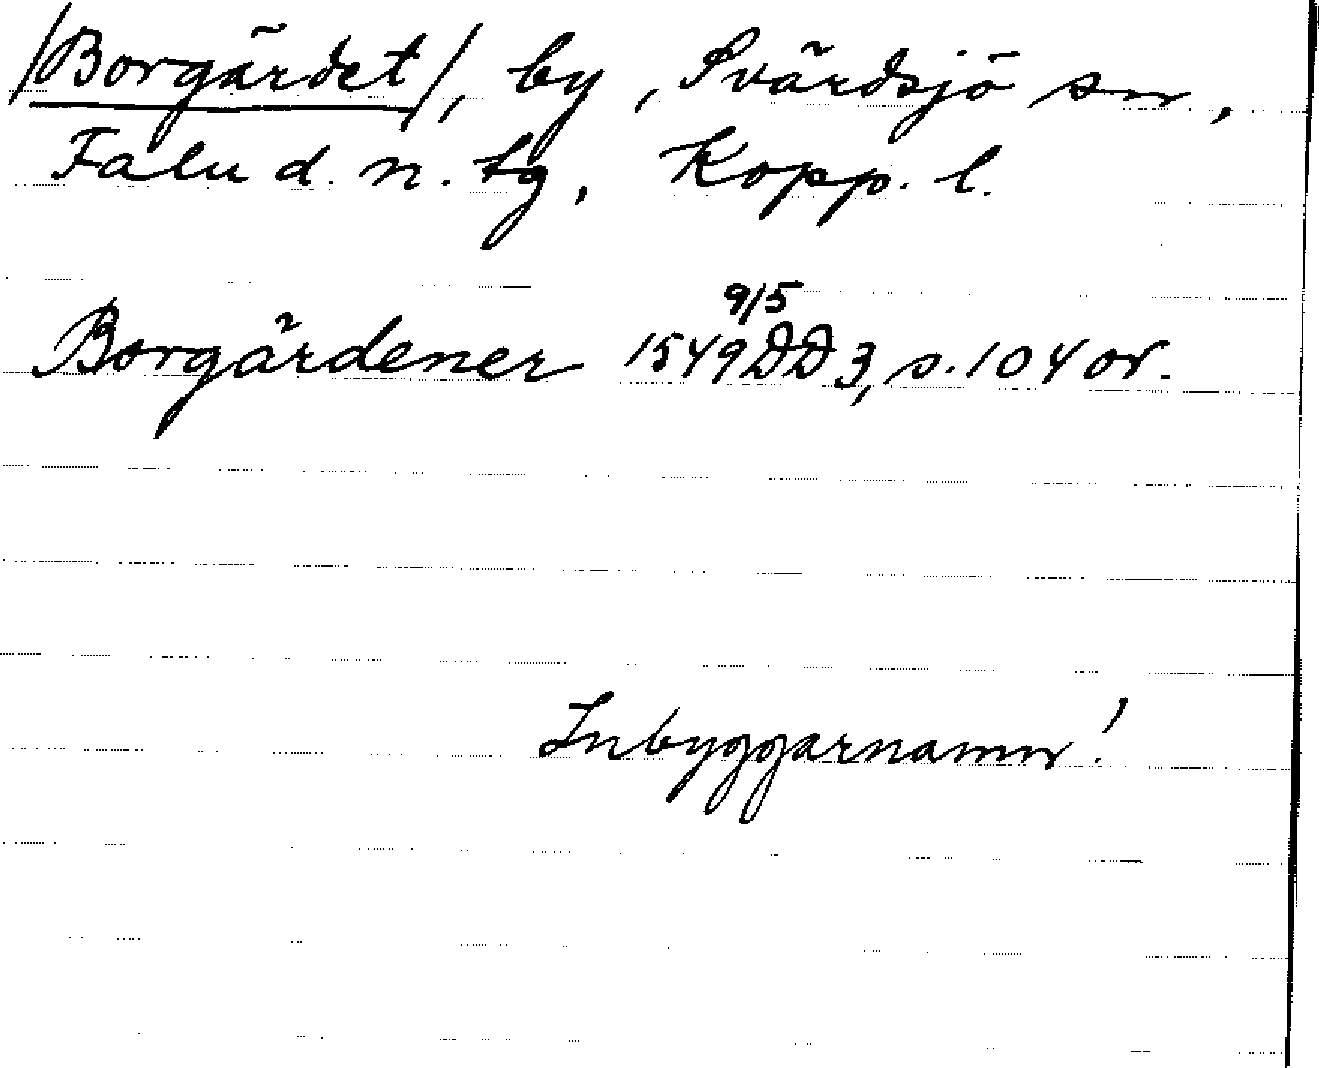 /Borgärdet/, by, Svärdsjö sn,
Falu d. n. tg, Kopp. l.
9/5
Borgärdener 1549 DD 3, s. 104 or.
Inbyggarnamn!